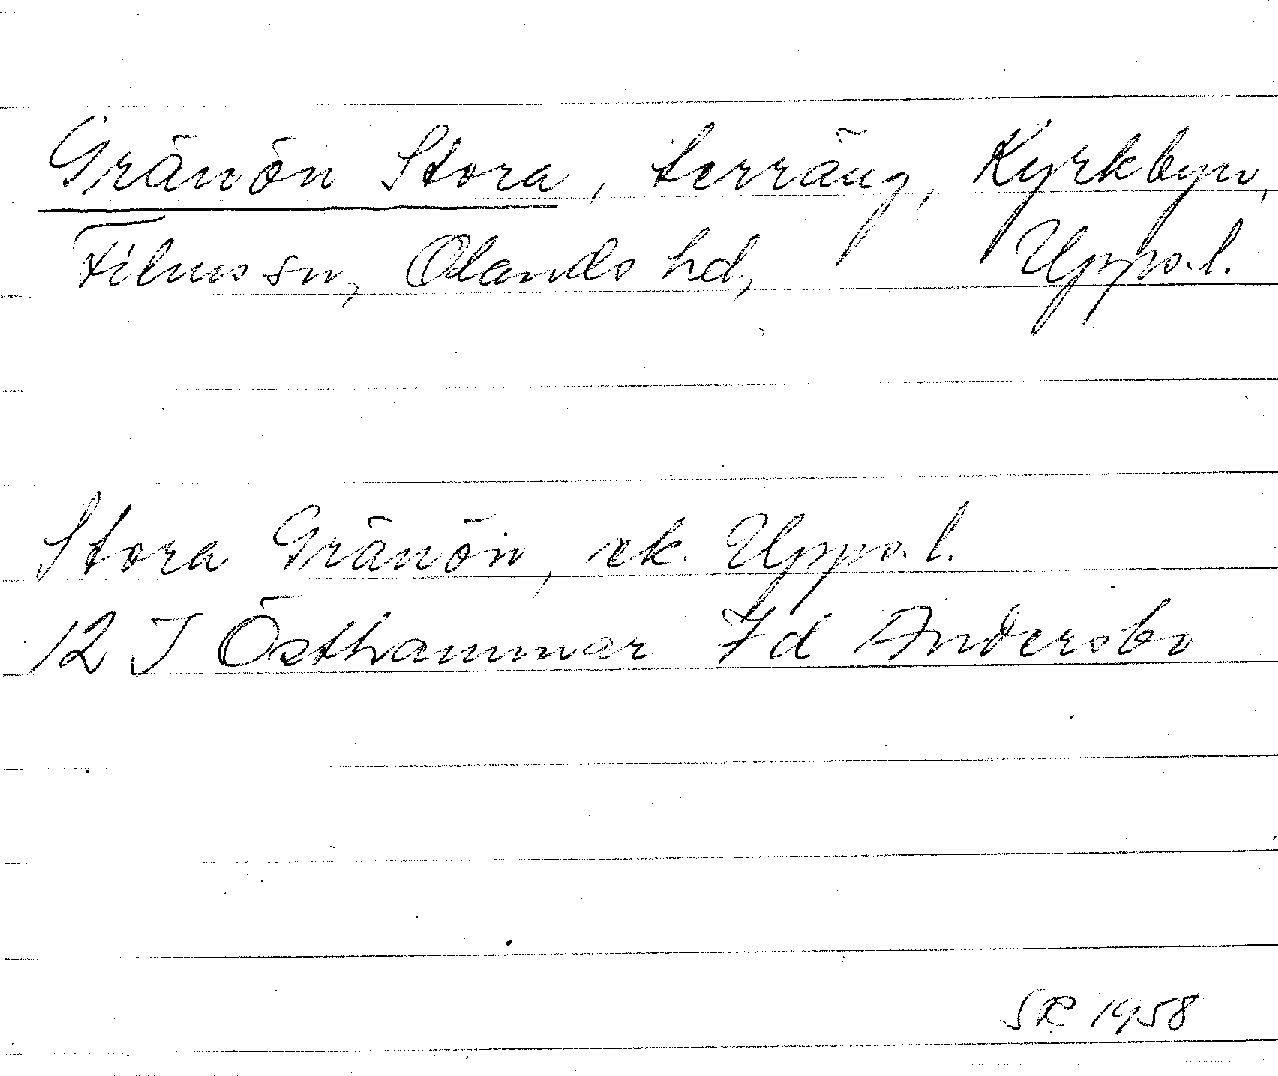 Gränön Stora, terräng, Kyrkbyn,
Films sn, Olands hd, Upps. l.
Stora Gränön, ek. Upps. l.
12 I Östhammar 7d Andersbo
SR 1958